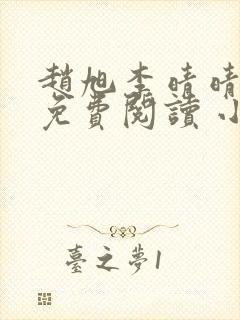 趙旭李晴晴
免費閱讀小
臺之夢1